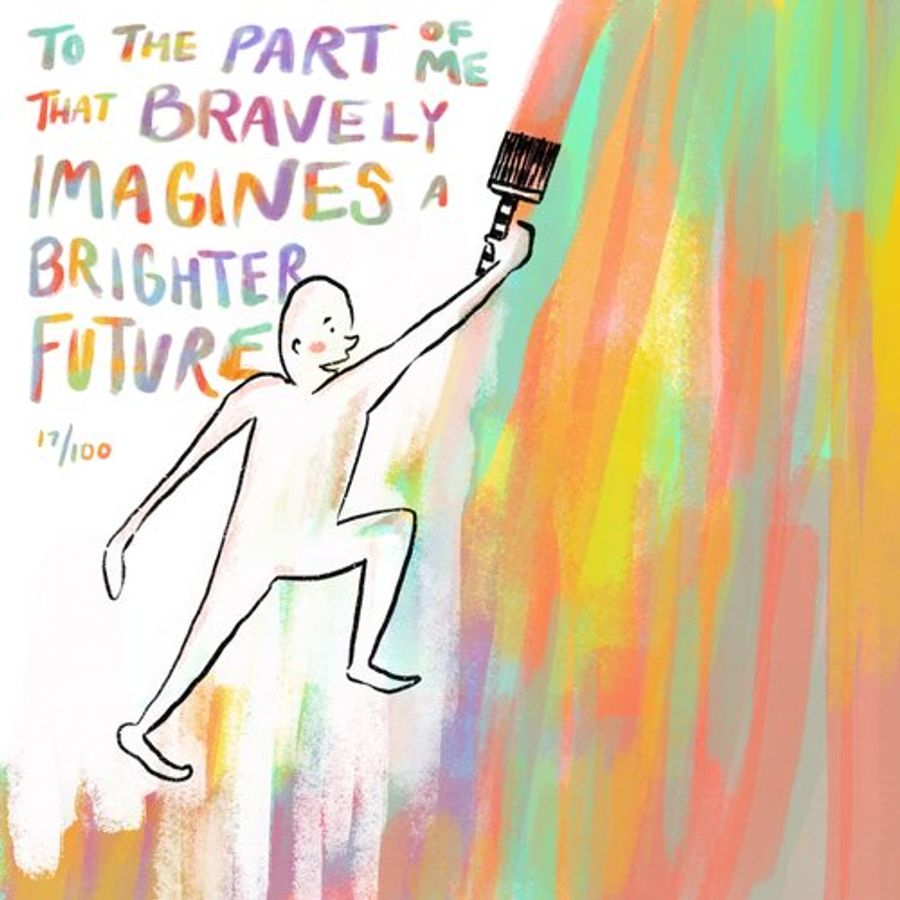 TO THE PART OF ME
THAT BRAVELY
IMAGINES A
BRIGHTER
FUTURE
17/100